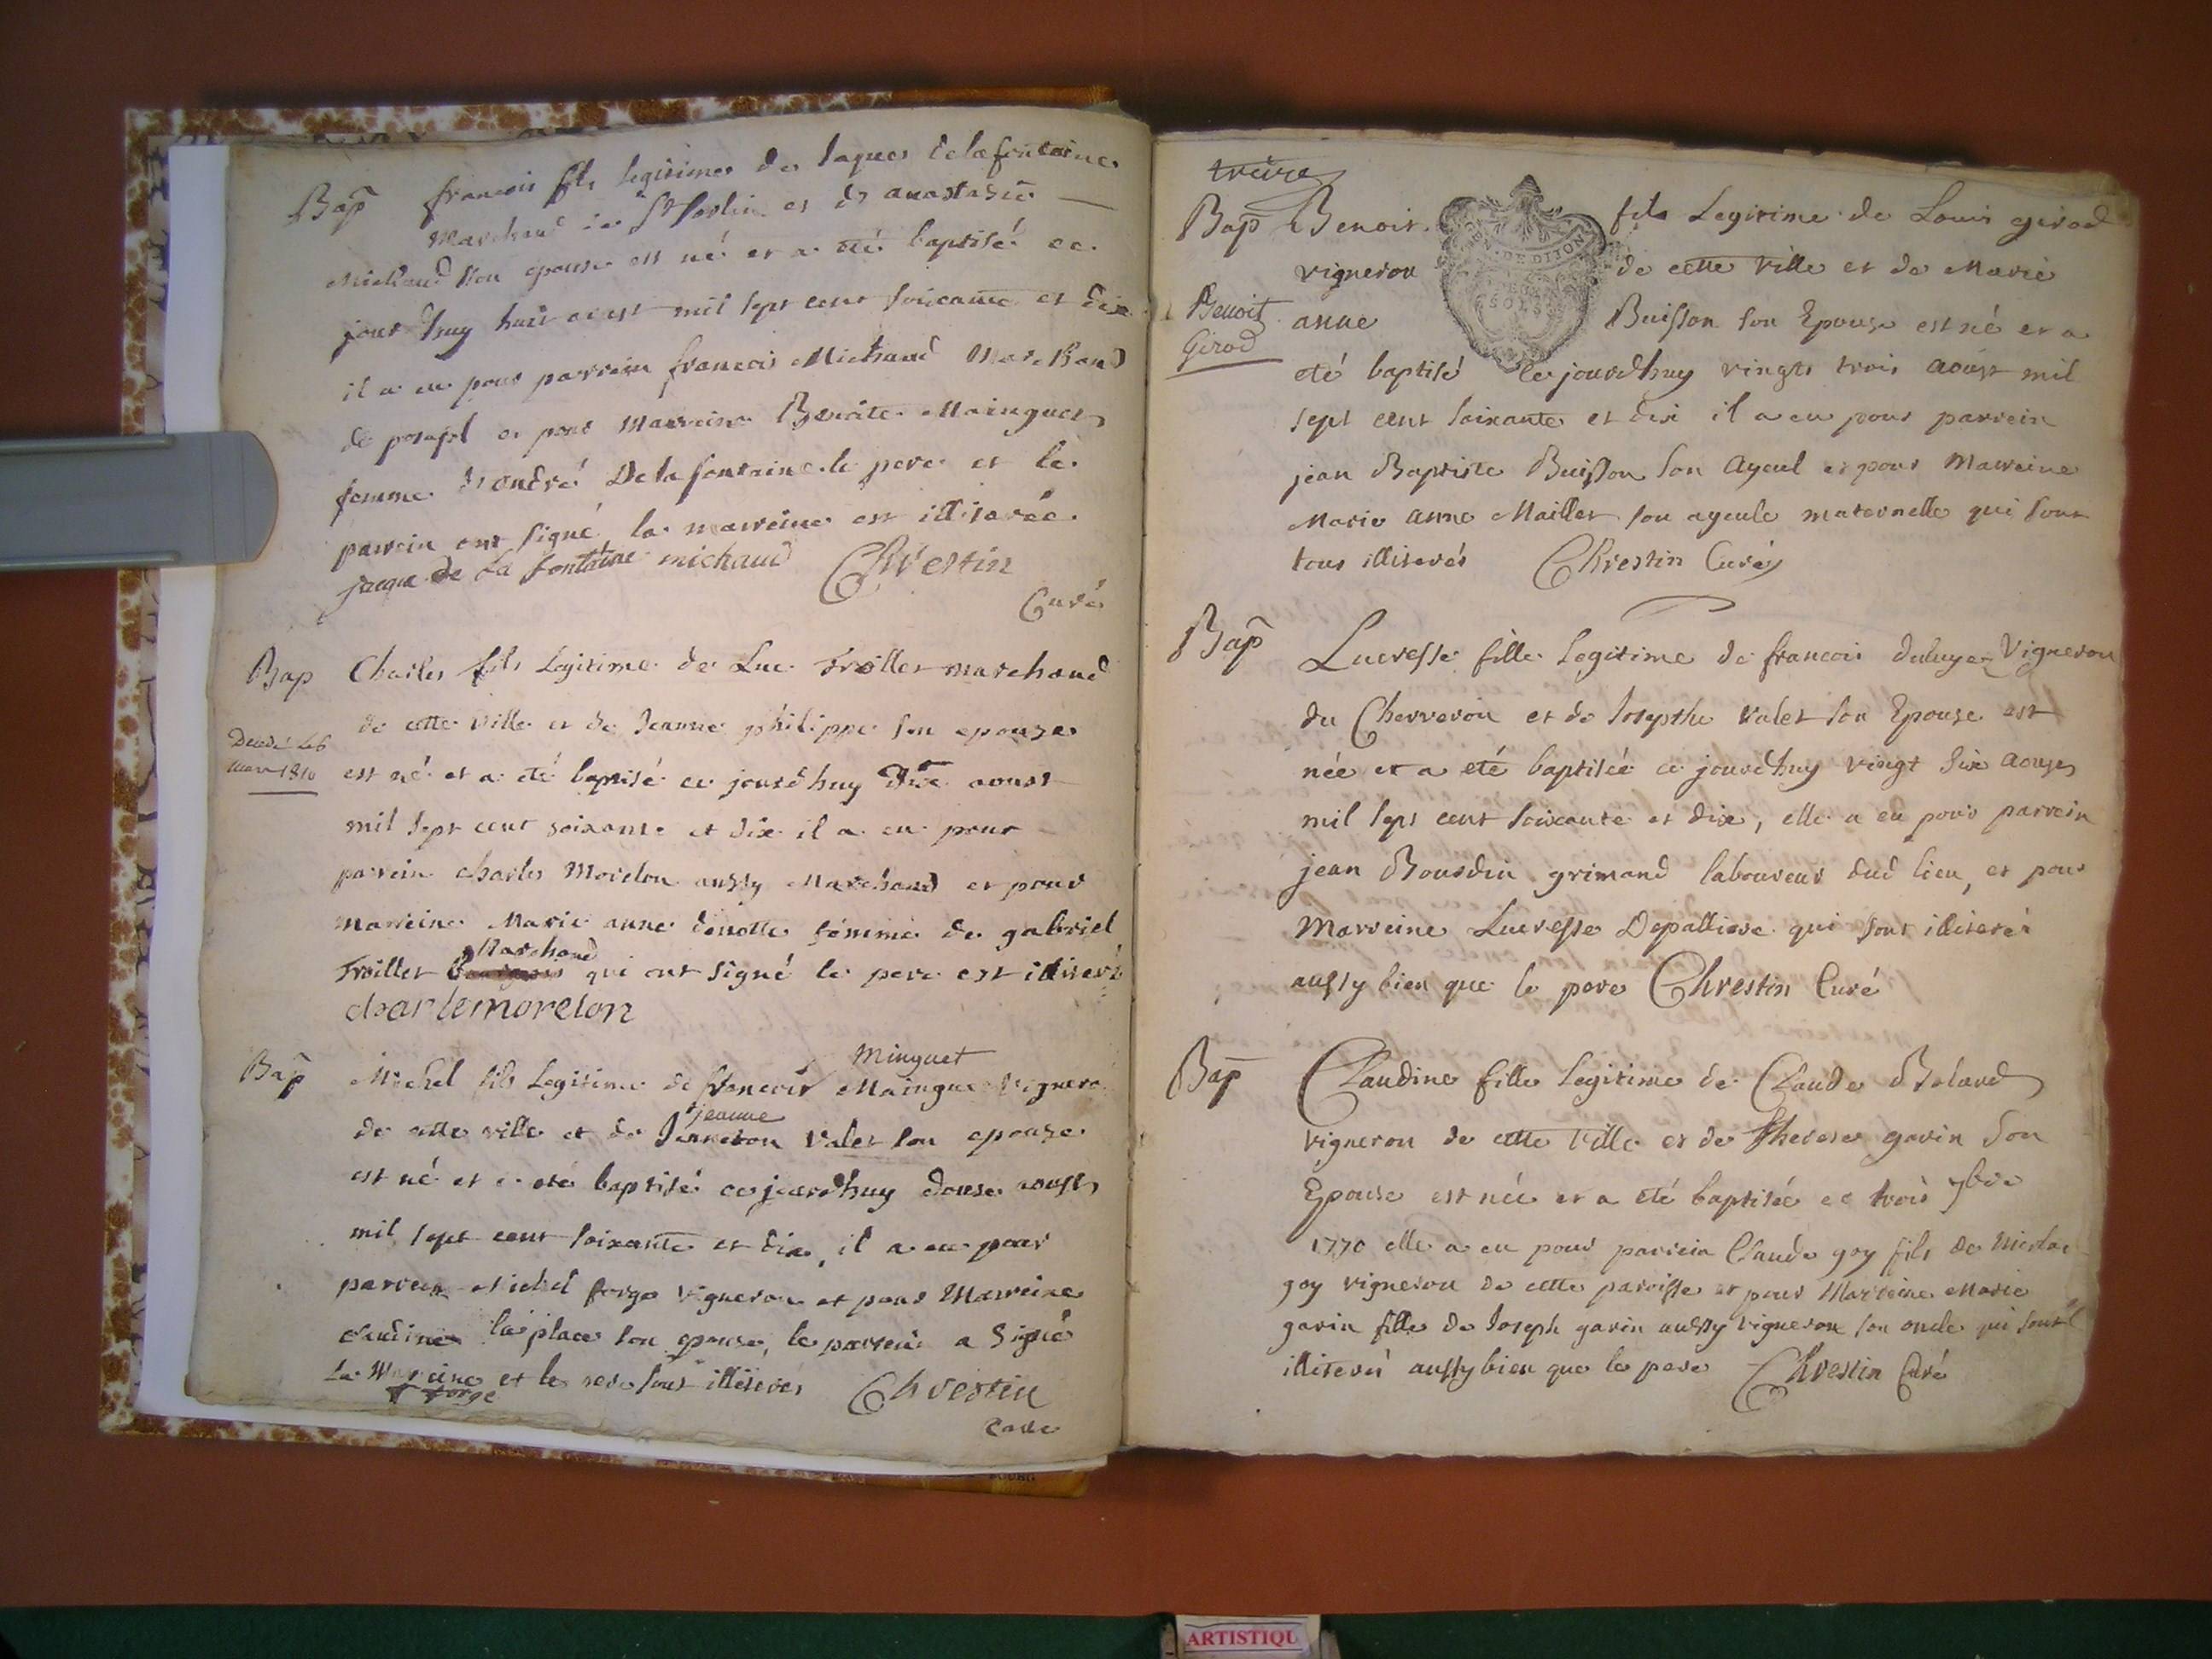 Bap francois fils legitime de Jaques delafontaine
marchand de St Sorlin et de anastasie
Michaud son epouse est né et a eté baptisé ce
jourdhuy huit aoust mil sept cent soixante et dix
il a eu pour parrein francois Michaud Marchand
de et pour Marreine Benoite Mainguet
femme d'andré Delafontaine le pere et le
parrein ont signé la marreine est illiterée
jacque de La fontaine michaud Chrestin
Curé
Bap Charles fils Legitime de Luc Troillet marchand
de cette ville et de Jeanne philippe son epouse
Decedé Le 6
mars 1810
est né et a eté baptisé ce jourdhuy dix aoust
mil sept cent soixante et dix il a eu pour
parrein charles Morelon aussy Marchand et pour
marreine Marie anne femme de gabriel
Marchand
Troillet qui ont signé le pere est illiteré
charle morelon
Minguet
Bap Michel fils Legitime de francois Maingue vigneron
jeanne
de cette ville et de Janneton Valet son epouse
est né et a eté baptisé ce jourdhuy douse aoust
mil sept cent soixante et dix, il a eu pour
parrein Michel forge vigneron et pour Marreine
claudine la place son epouse, le parrein a signé
La Marreine et le pere sont illiterés Chrestin
forge
Curé
treize
Bap Benoit fils Legitime de Louis girod
vigneron de cette ville et de Marie
GEN. DE DIJON
SOLS
Benoit
Girod
anne Buisson son Epouse est né et a
eté baptisé le jourdhuy vingts trois aoust mil
sept cent soixante et dix il a eu pour parrein
jean Baptiste Buisson son ayeul et pour Marreine
Marie anne Maillet son ayeule maternelle qui sont
tous illiterés Chrestin Curé
Bap Lucresse fille legitime de francois duluyer Vigneron
du Cherveron et de Josepthe valet son Epouse est
née et a eté baptisée ce jourdhuy vingt six aoust
mil sept cent soixante et dix, elle a eu pour parrein
jean Bourdin grimand laboureur dud lieu, et pour
Marreine Lucresse Depalliere qui sont illiteré
aussy bien que le pere Chrestin Curé
Bap Claudine fille legitime de Claude Bolard
vigneron de cette Ville et de Therese gavin son
Epouse est née et a eté baptisée ce trois 7bre
1770 elle a eu pour parrein Claude goy fils de Nicolas
goy vigneron de cette paroisse et pour Marreine Marie
gavin fille de Joseph gavin aussy vigneron son oncle qui sont
illiterés aussy bien que le pere Chrestin Curé
ARTISTIQU